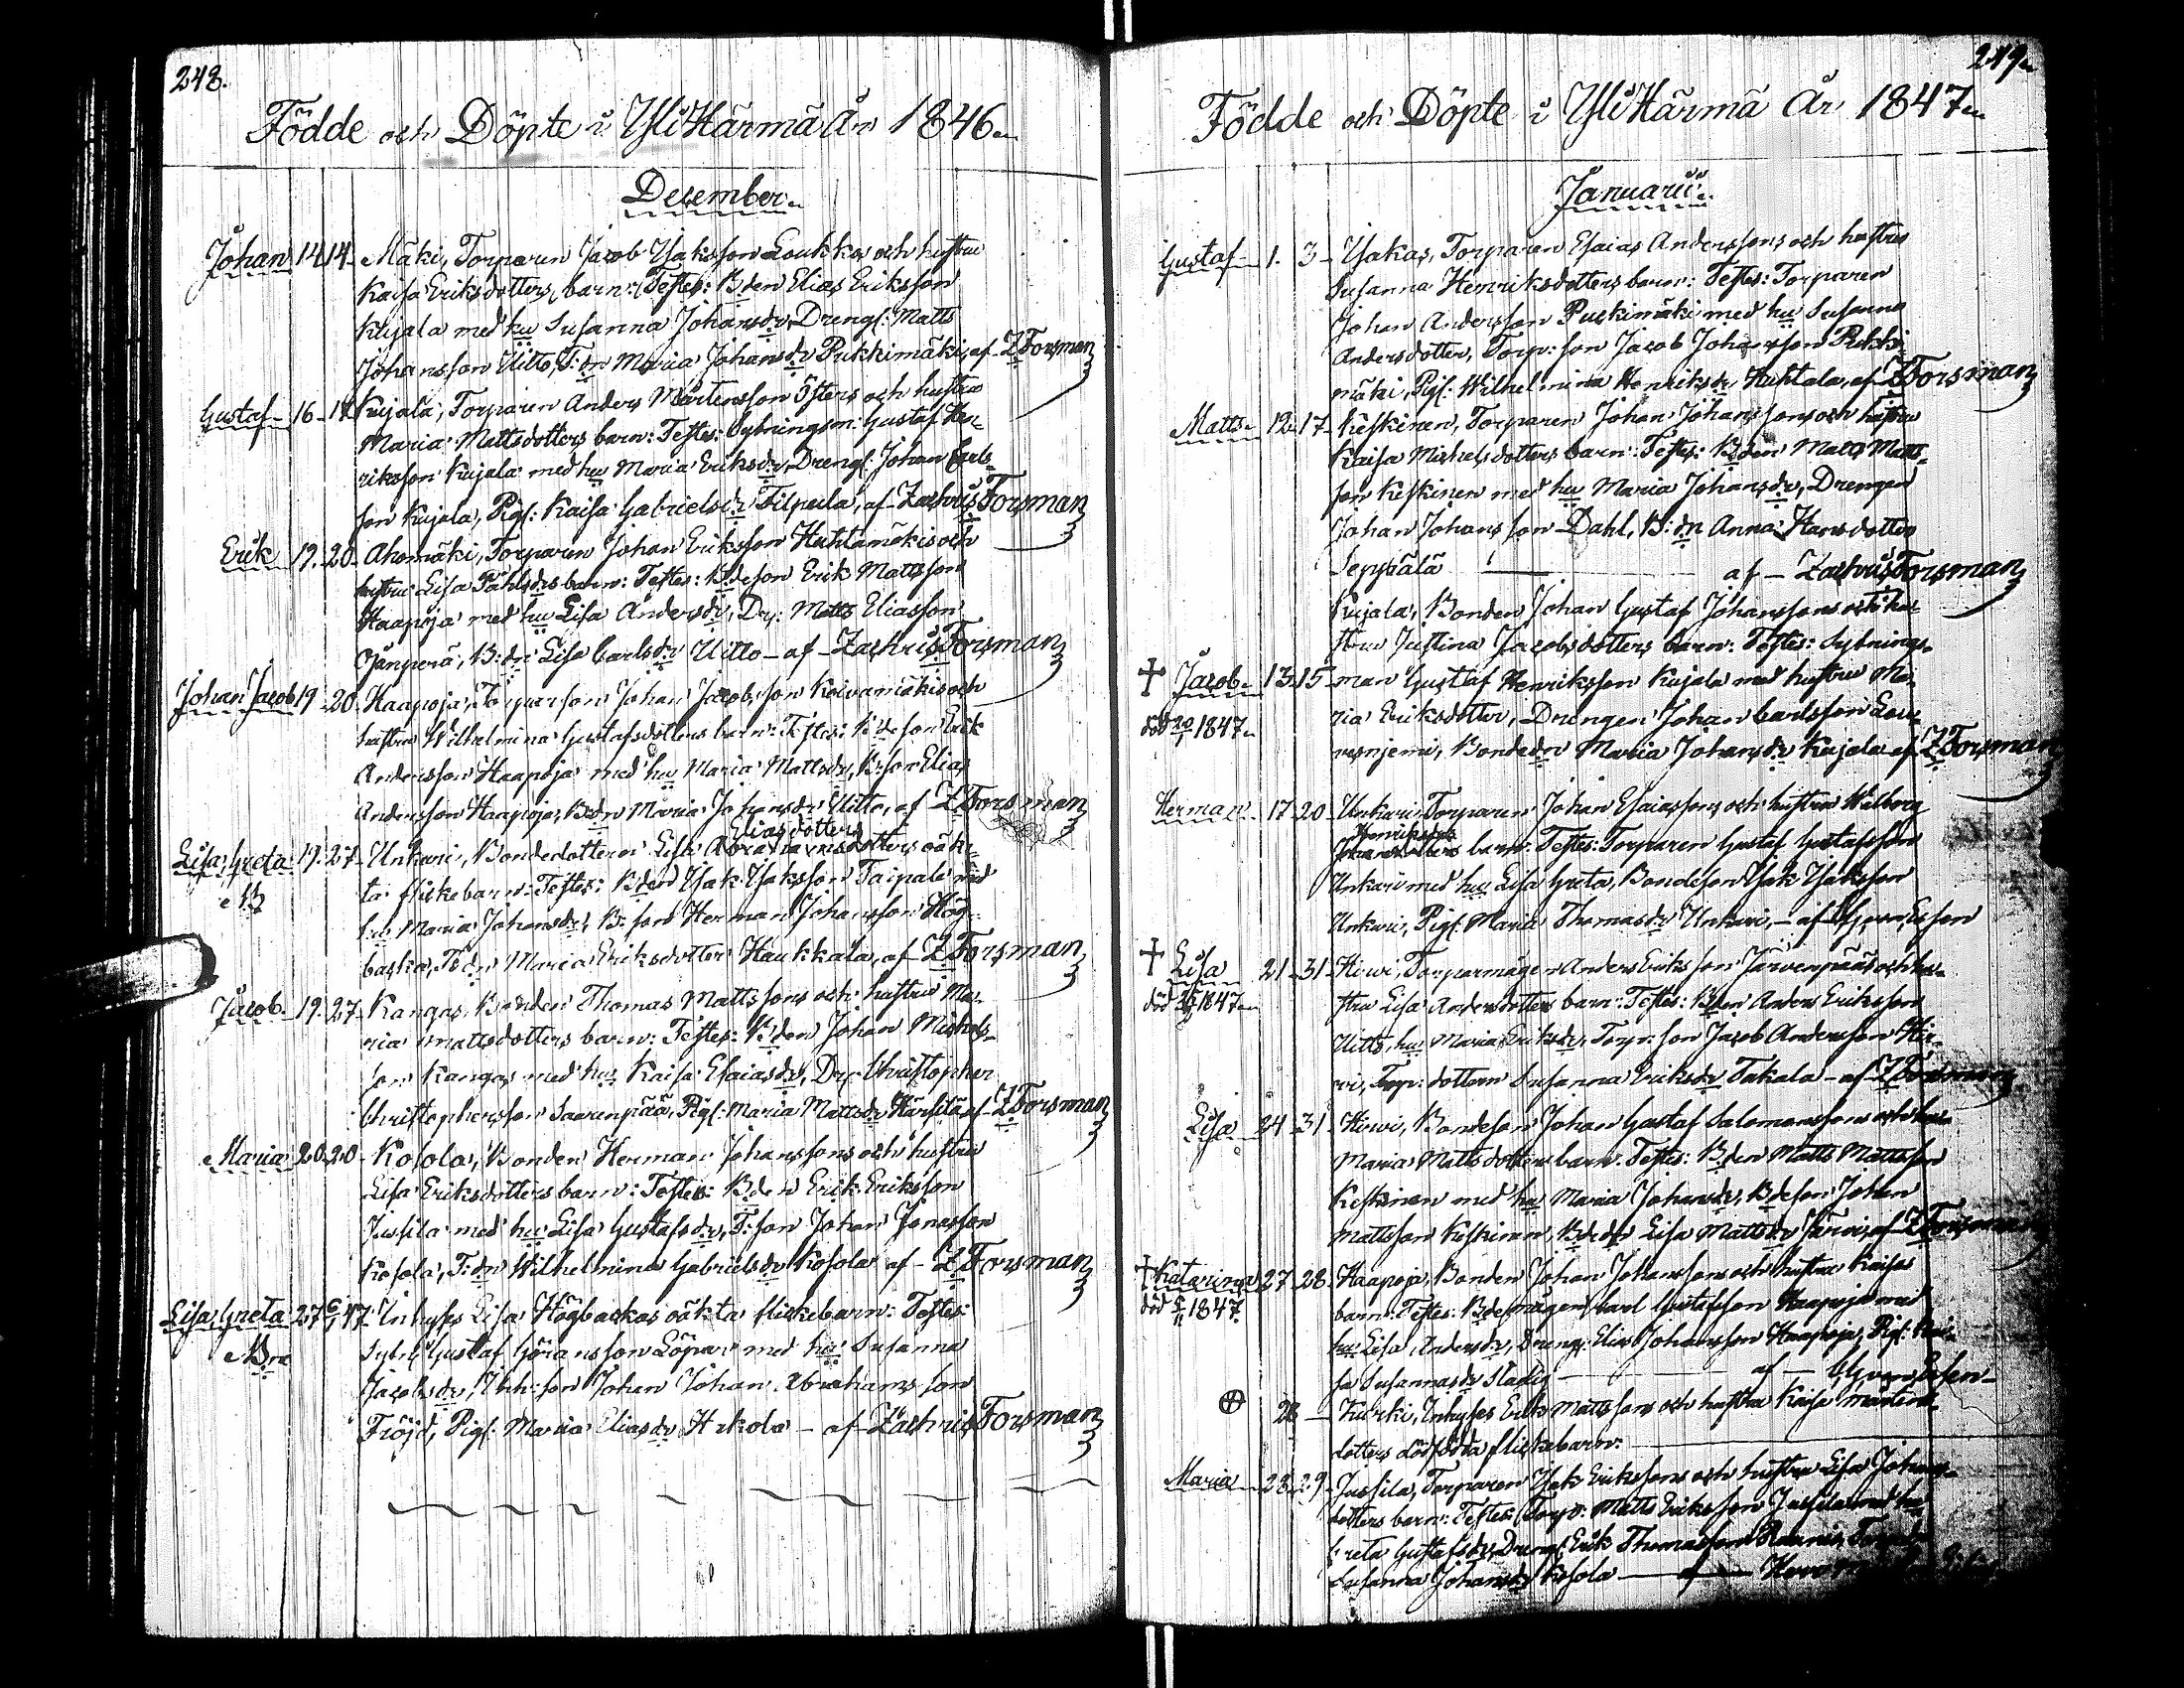 248.
Födde och Döpte i YliHärmä År 1846
December
Johan 14 14 Mäki, Torparen Jacob Isaksson Loukkos och hustru
Kaisa Eriksdotters barn: Testes: Bden Elias Eriksson
Kujala med hu Susanna Johansdr, Drengs: Matts
Johansson Uitto, T:dn Maria Johansdr Pukkimäki, af Z Forsman
Gustaf 16 Kujala, Torparen Anders Mårtensson Östers och hustru
Maria Mattsdotters barn: Testes: Sytningsm: Gustaf Hen-
riksson Kujala med hu Maria Eriksdr, Drengs: Johan Carls-
son Kujala, Pigs: Kaisa Gabrielsdr Filpula, af Zachris Forsman
Erik 19. 20 Ahomäki, Torparen Johan Eriksson Huhtamäkis och
hustru Lisa Påhlsdrs barn: Testes: Bdeson Erik Mattsson
Haapoja med hu Lisa Andersdr, Dr: Matts Eliasson
B:dn Lisa Carlsdr Uitto – af – Zachris Forsman
Johan Jacob 19 20 Haapoja, Torparson Johan Jacobsson Koivumäkis och
hustru Wilhelmina Gustafsdotters barn: Testes: Bdeson Erik
Andersson Haapoja med hu Maria Mattsdr, B:son Elias
Andersson Haapoja, Bdn Maria Johansdr Uitto, af Z Forsman
Eliasdotters
Lisa Greta 19. 27 Unkuri, Bondedottern Lisa Abrahamsdotters oäk-
NB
ta flickebarn: Testes: Bden Isak Isaksson Taipale med
hu Maria Johansdr, B:son Herman Johansson Hög-
backa, Tdn Maria Eriksdotter Haukkala, af Z Forsman
Jacob 19. 27 Kangas, Bonden Thomas Mattssons och hustru Ma-
ria Mattsdotters barn: Testes: Bden Johan Michels-
son Kangas med hu Kaisa Esaiasdr, Dr: Christopher
Christophersson Saarenpää, Pigs: Maria Mattsdr Härsilä af Z Forsman
Maria 20 20 Kosola, Bonden Herman Johanssons och hustru
Lisa Eriksdotters barn: Testes: Bden Erik Eriksson
Jussila med hu Lisa Gustafsdr, T:son Johan Jonasson
Kosola, T:dn Wilhelmina Gabrielsdr Kosola af – Z Forsman
Lisa Greta 27 47 Inhyses Lisa Högbackas oäkta flickebarn: Testes:
NB
Gustaf Göransson Löpare med hu Susanna
Jacobsdr, Inh:son Johan Johan Abrahamsson
Fröjd, Pigs: Maria Eliasdr Hekola – af Zachris Forsman
249
Födde och Döpte i YliHärmä År 1847
Januarii
Gustaf 1. 3 Isakas, Torparen Esaias Anderssons och hustru
Susanna Henriksdotters barn: Testes: Torparen
Johan Andersson Puckimäki med hu Susanna
Andersdotter, Torp:son Jacob Johansson Pukki-
mäki, Pigs: Wilhelmina Henriksdr Huhtala, af Z Forsman
Matts 12 17 Keskinen, Torparen Johan Johanssons och hustru
Kaisa Michelsdotters barn: Testes: Bden Matts Matts-
son Keskinen med hu Maria Johansdr, Drengen
Johan Johansson Dahl, B:dn Anna Hansdotter
Seppälä – af – Zachris Forsman
Kujala, Bonden Johan Gustaf Johanssons och hu-
stru Justina Jacobsdotters barn: Testes: Sytnings-
† Jacob 13 15 man Gustaf Henriksson Kujala med hustru Ma-
död 20/1 1847
ria Eriksdotter, Drengen Johan Carlsson Lou-
Bondedr Maria Johansdr Kujala af Z Forsman
Herman 17 20 Unkuri, Torparen Johan Esaiassons och hustru Walborg
Henriksdotters
barn: Testes: Torparen Gustaf Gustafsson
Unkuri med hu Lisa Greta, Bondeson Isak Isaksson
Unkuri, Pigs: Maria Thomasdr Unkuri, – af
† Lisa 21 31 Hirvi, Torparmågen Anders Eriksson Järvenpääs och hu-
död 1847
stru Lisa Andersdotters barn: Testes: Bden Anders Eriksson
Uitto, hu Maria Eriksdr, Torp:son Jacob Andersson Hir-
vi, Torp:dottern Susanna Eriksdr Takala – af Z Forsman
Lisa 24 31 Hirvi, Bondeson Johan Gustaf Salomonssons och hu
Maria Mattsdotters barn: Testes: Bden Matts Mattsson
Keskinen med hu Maria Johansdr, Bdeson Johan
Mattsson Keskinen, Bdedr Lisa Mattsdr Järvi, af Z Forsman
† Katarina 27 28 Haapoja, Bonden Johan Johanssons och hustru Kaisas
död 1847
barn: Testes: Bdemågen Carl Gustafsson Haapoja med
hu Lisa Andersdr, Dreng: Elias Johansson Haapoja, Pigs: Kai-
sa Susannasdr Stadig – af –
28 Kurki, Inhyses Erik Mattssons och hustru Kaisa Mårtens-
dotters dödfödda flickebarn.
Maria 28 29 Jussila, Torparen Isak Erikssons och hustru Lisa Johans-
dotters barn: Testes: Torp: Matts Eriksson Jussila med hu
Greta Gustafsdr, Drengs: Erik Thomasson
Susanna Johansdr Kosola – af